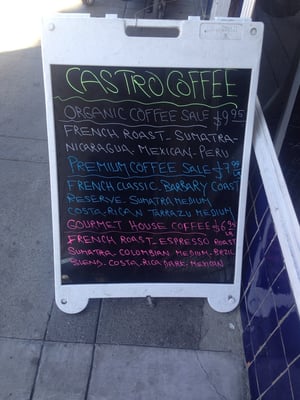 CASTRO COFFEE
ORGANIC COFFEE SALE $9.95
FRENCH ROAST - SUMATRA -
NICARAGUA. MEXICAN. PERU
PREMIUM COFFEE SALE
FRENCH CLASSIC. BARBARY COAST
RESERVE. SUMATRA MEDIUM
COSTA RICAN TARRAZU MEDIUM
GOURMET HOUSE COFFEE $6.95
FRENCH ROAST - ESPRESSO ROAST
SUMATRA - COLOMBIAN MEDIUM - BRZIL
BLEND - COSTA RICA DARK - MEXICAN